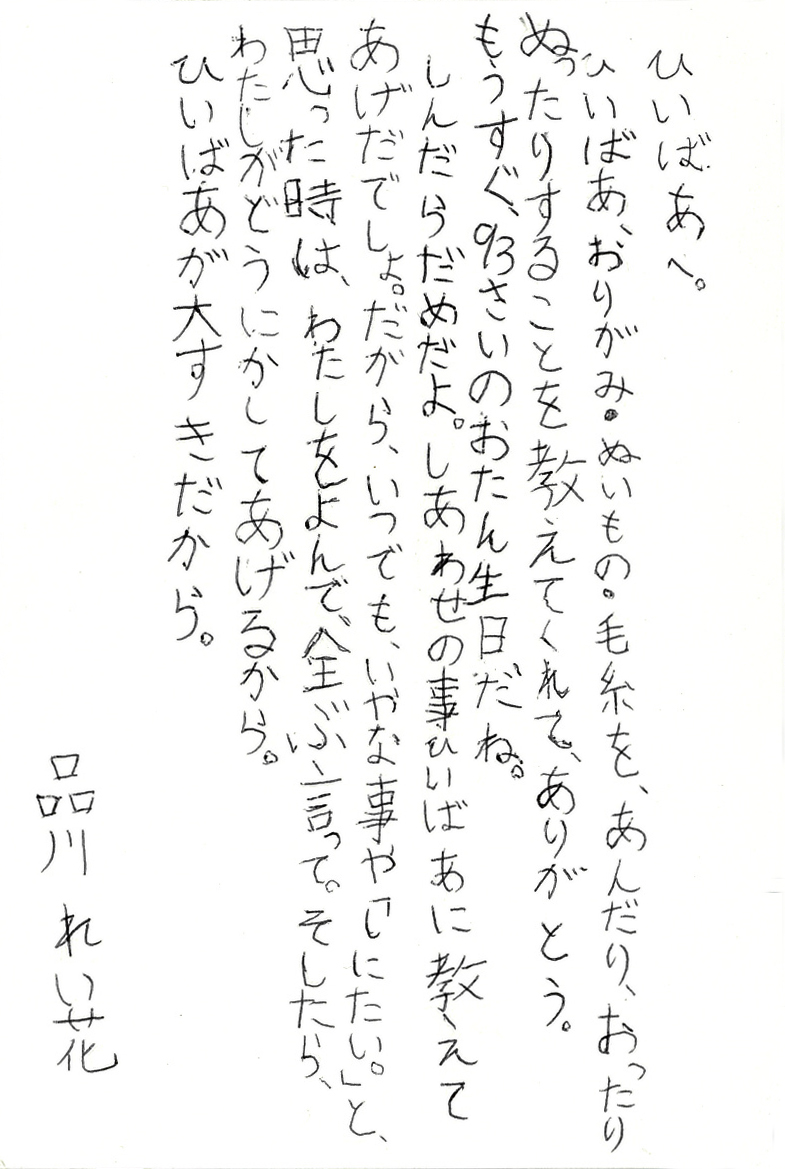 ひいばあへ。
ひいばあ、おりがみ・ぬいもの・毛糸を、あんだり、おったり
ぬったりすることを教えてくれて、ありがとう。
もうすぐ、93さいのおたん生日だね。
しんだらだめだよ。しあわせの事ひいばあに教えて
あげだでしょ。だから、いつでも、いやな事や「しにたい。」と、
思った時は、わたしをよんで、全ぶ言って。そしたら、
わたしがどうにかしてあげるから。
ひいばあが大すきだから。
品川 れい花